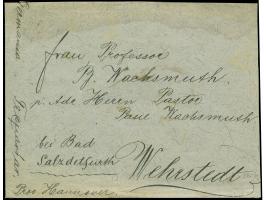 Frau Professor
P. Wachsmuth.
p. Adr. Herrn Pastor
Paul Wachsmuth
bei Bad
Salzdetfurth
Wehrstedt
Prov. Hannover.
Germania